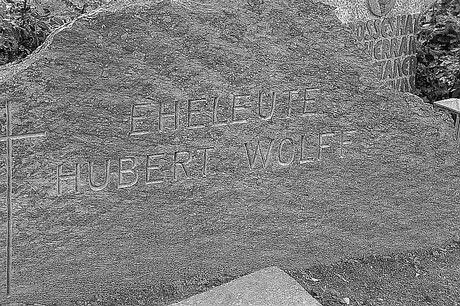 EHELEUTE
HUBERT WOLFF